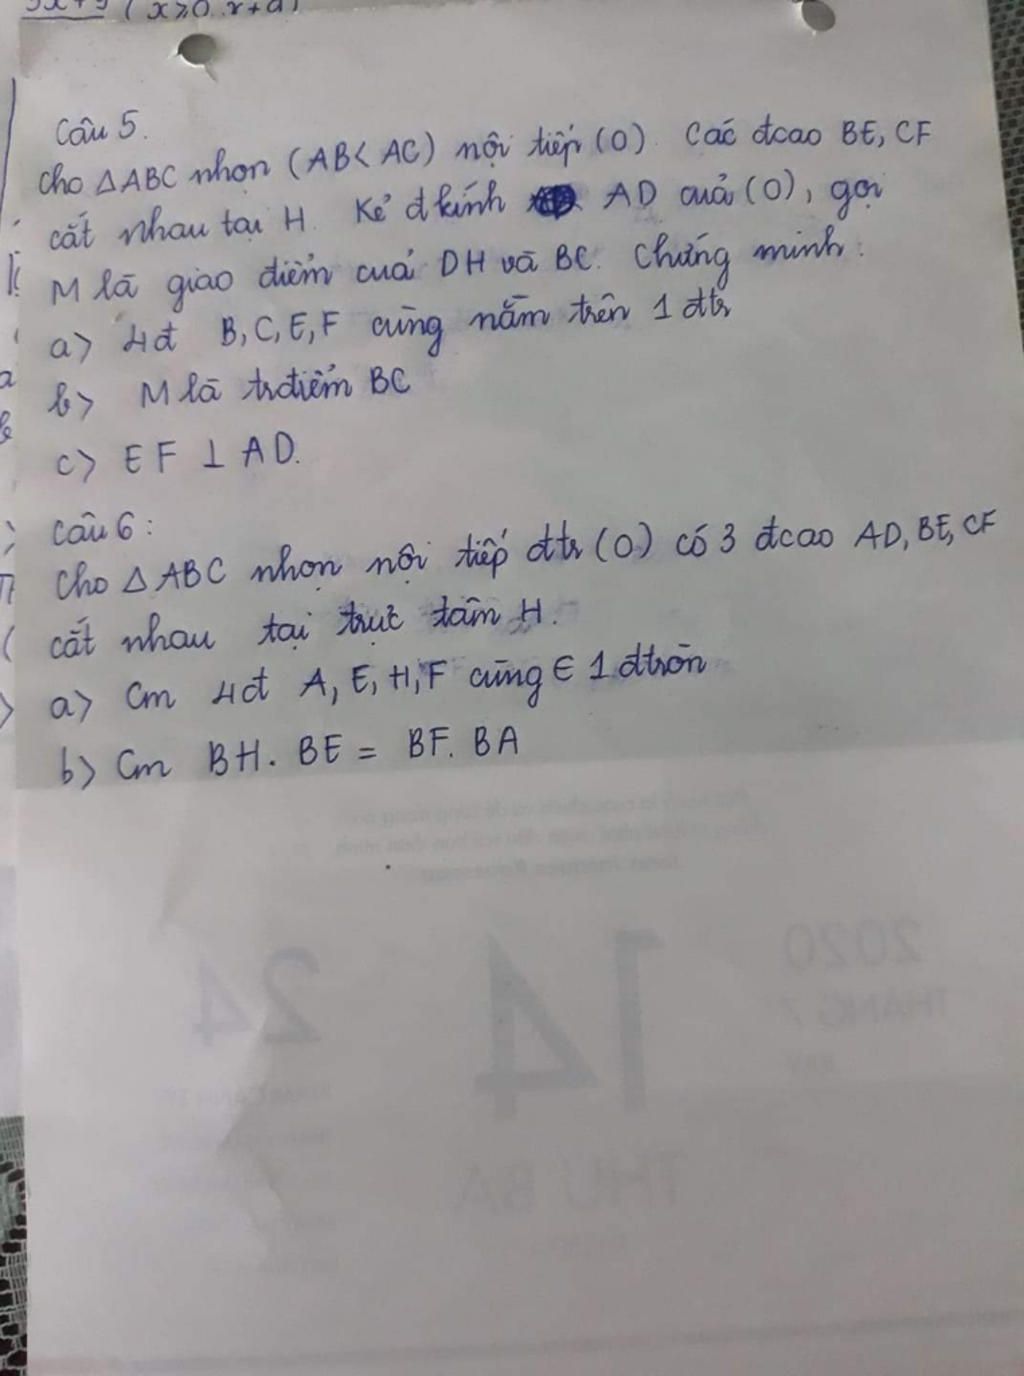 Câu 5.
Cho △ABC nhọn (AB< AC) nội tiếp (O). Các đcao BE, CF
cắt nhau tại H. Kẻ đkính AD của (O), gọi
M là giao điểm của DH và BC. Chứng minh:
a> 4đ B, C, E, F cùng nằm trên 1 đtr
b> M là trđiểm BC
c> EF ⊥ AD.
Câu 6:
Cho △ABC nhọn nội tiếp đtr (O) có 3 đcao AD, BE, CF
cắt nhau tại trực tâm H.
a> Cm 4đ A, E, H, F cùng ∈ 1 đtròn
b> Cm BH. BE = BF. BA
2020
THÁNG 7
14
24
THỨ BA